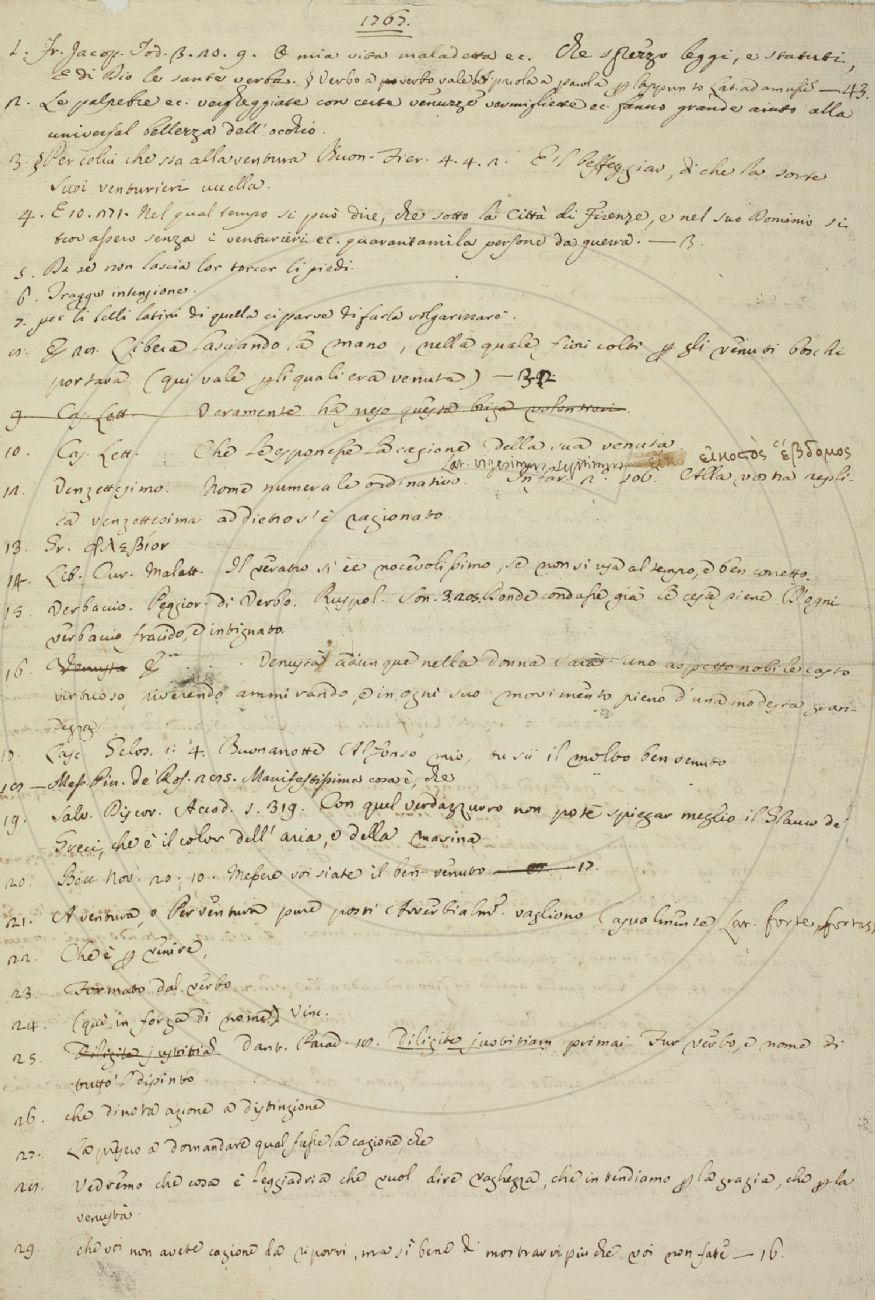 1767.
1. Fr. Jacop. Tod. 3. 20. 9. O mia vita maladetta ec. Che sprezzo leggi, e statuti,
E di Dio le sante verba. § Verbo a verbo vale parola a parola Lat. ad amussim — 43.
2. Le palpebre ec. vergheggiate con certe venuzze vermigliette ec. fanno grande aiuto alla
universal bellezza dell'occhio.
3. § Per colui che sta alla ventura Buon. Fier. 4. 4. 2. E il beffeggiar, di che la sorte
Suoi venturieri uccella.
4. E 10. 171. Nel qual tempo si può dire, che sotto la Città di Firenze, e nel suo Dominio si
trovassero senza i venturieri ec. quarantamila persone da guerra. — 3.
5. Da se non lascia lor torcer li piedi.
6. Tragge intenzione.
7. per li belli latini di quella ci parve di farla volgarizzare.
8. Libera lasciando la mano, nella quale fiori colti p gli venuti boschi
portava (qui vale p li quali era venuta) — 32
9. Cas. Lett. Veramente ha preso questa briga volontieri.
10. Cas. Lett. Che le esponesse la cagione della sua venuta
Lat. vigesimus septimus εἰκοστὸς ἑβδομος
12. Venzettesimo. Nome numerale ordinativo. 2. 106. Alla vostra repli-
ca venzettesima addietro s'è ragionato.
13. Gr. φλεβίον
14. Lib. Cur. Malatt. Il veratro si è nocevolissimo, se non si usa al tempo, e ben corretto.
15. Verbaccio. Peggior. di Verbo. Ruspol. Son. 3. 205. Ronde condusse già le ceste piene D'ogni
verbaccio fracido, e intignato.
16. Venusta Venustà adunque nella donna sarà uno aspetto nobile casto
virtuoso, riverendo, ammirando, e in ogni suo movimento pieno d'una modesta gran-
dezza.
Lasc. Gelos. 1. 4. Buonanotte Alfonso mio, tu sii il molto ben venuto
18 — Mess. Pin. de' Ros. 205. Manifestissima cosa è, che
19. Salv. Discor. Accad. 1. 319. Con quel verdazzurro non potè spiegar meglio il Glauco de'
Greci, che è il color dell'aria, e della marina
20. Bocc. Nov. 20. 10. Messere voi siate il ben venuto — 17.
21. A ventura, o Per ventura pure posti Avverbialm. vagliono Casualmente Lat. forte,
22. Che è p venire,
23. Formato dal verbo
24. (qui in forza di nome) Vinc.
25. Diligite justitia Dant. Parad. 18. Diligite justitiam primai Fur verbo, e nome di
tutto 'l dipinto
26. che dinota azione a distinzione
27. La prese a domandare qual fusse la cagione, che
28. Vedremo che cosa è leggiadria che vuol dire vaghezza, che intendiamo p la grazia, che p la
venustà.
29. che voi non avete cagione da riporvi, ma sì bene di mostrarvi più che voi non fate — 16.